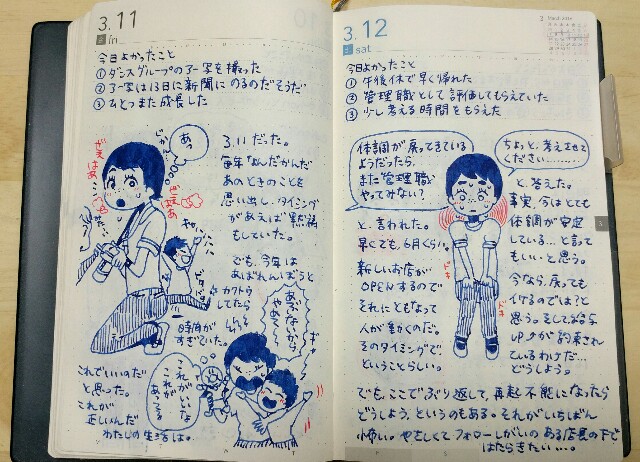 3.11
fri
今日よかったこと
① ダンスグループのアー写を撮った
② アー写は13日に新聞にのるのだそうだ
③ ひとつまた成長した
あっ
3.11だった。
毎年なんだかんだ
あのときのことを
思い出し、タイミング
があえば黙祷
もしていた。
でも、今年は
あばれんぼうと
カクトウ
してたら
時間が
すぎていた。
あぶないから
やめて〜
これでいいのだ
と思った。
これが
正しいんだ
わたしの生活は。
これがいいな
これが
3.12
sat
2 March 2016
今日よかったこと
① 午後休で早く帰れた
② 管理職として評価してもらえていた
③ 少し考える時間をもらえた
体調が戻ってきている
ようだったら、
また管理職
やってみない？
ちょっと、考えさせて
ください………
と、言われた。
早くても、6月くらい。
新しいお店が
OPENするので
それにともなって
人が動くのだ。
そのタイミングで、
ということらしい。
と答えた。
事実、今はとても
体調が安定
している…と言って
もいいと思う。
今なら、戻っても
イケるのでは？と
思う。そして給与
UPが約束され
ているわけだ…
どうしよう。
でも、ここでぶり返して、再起不能になったら
どうしよう、というのもある。それがいちばん
小怖い。やさしくてフォローしがいのある店長の下で
はたらきたい…。